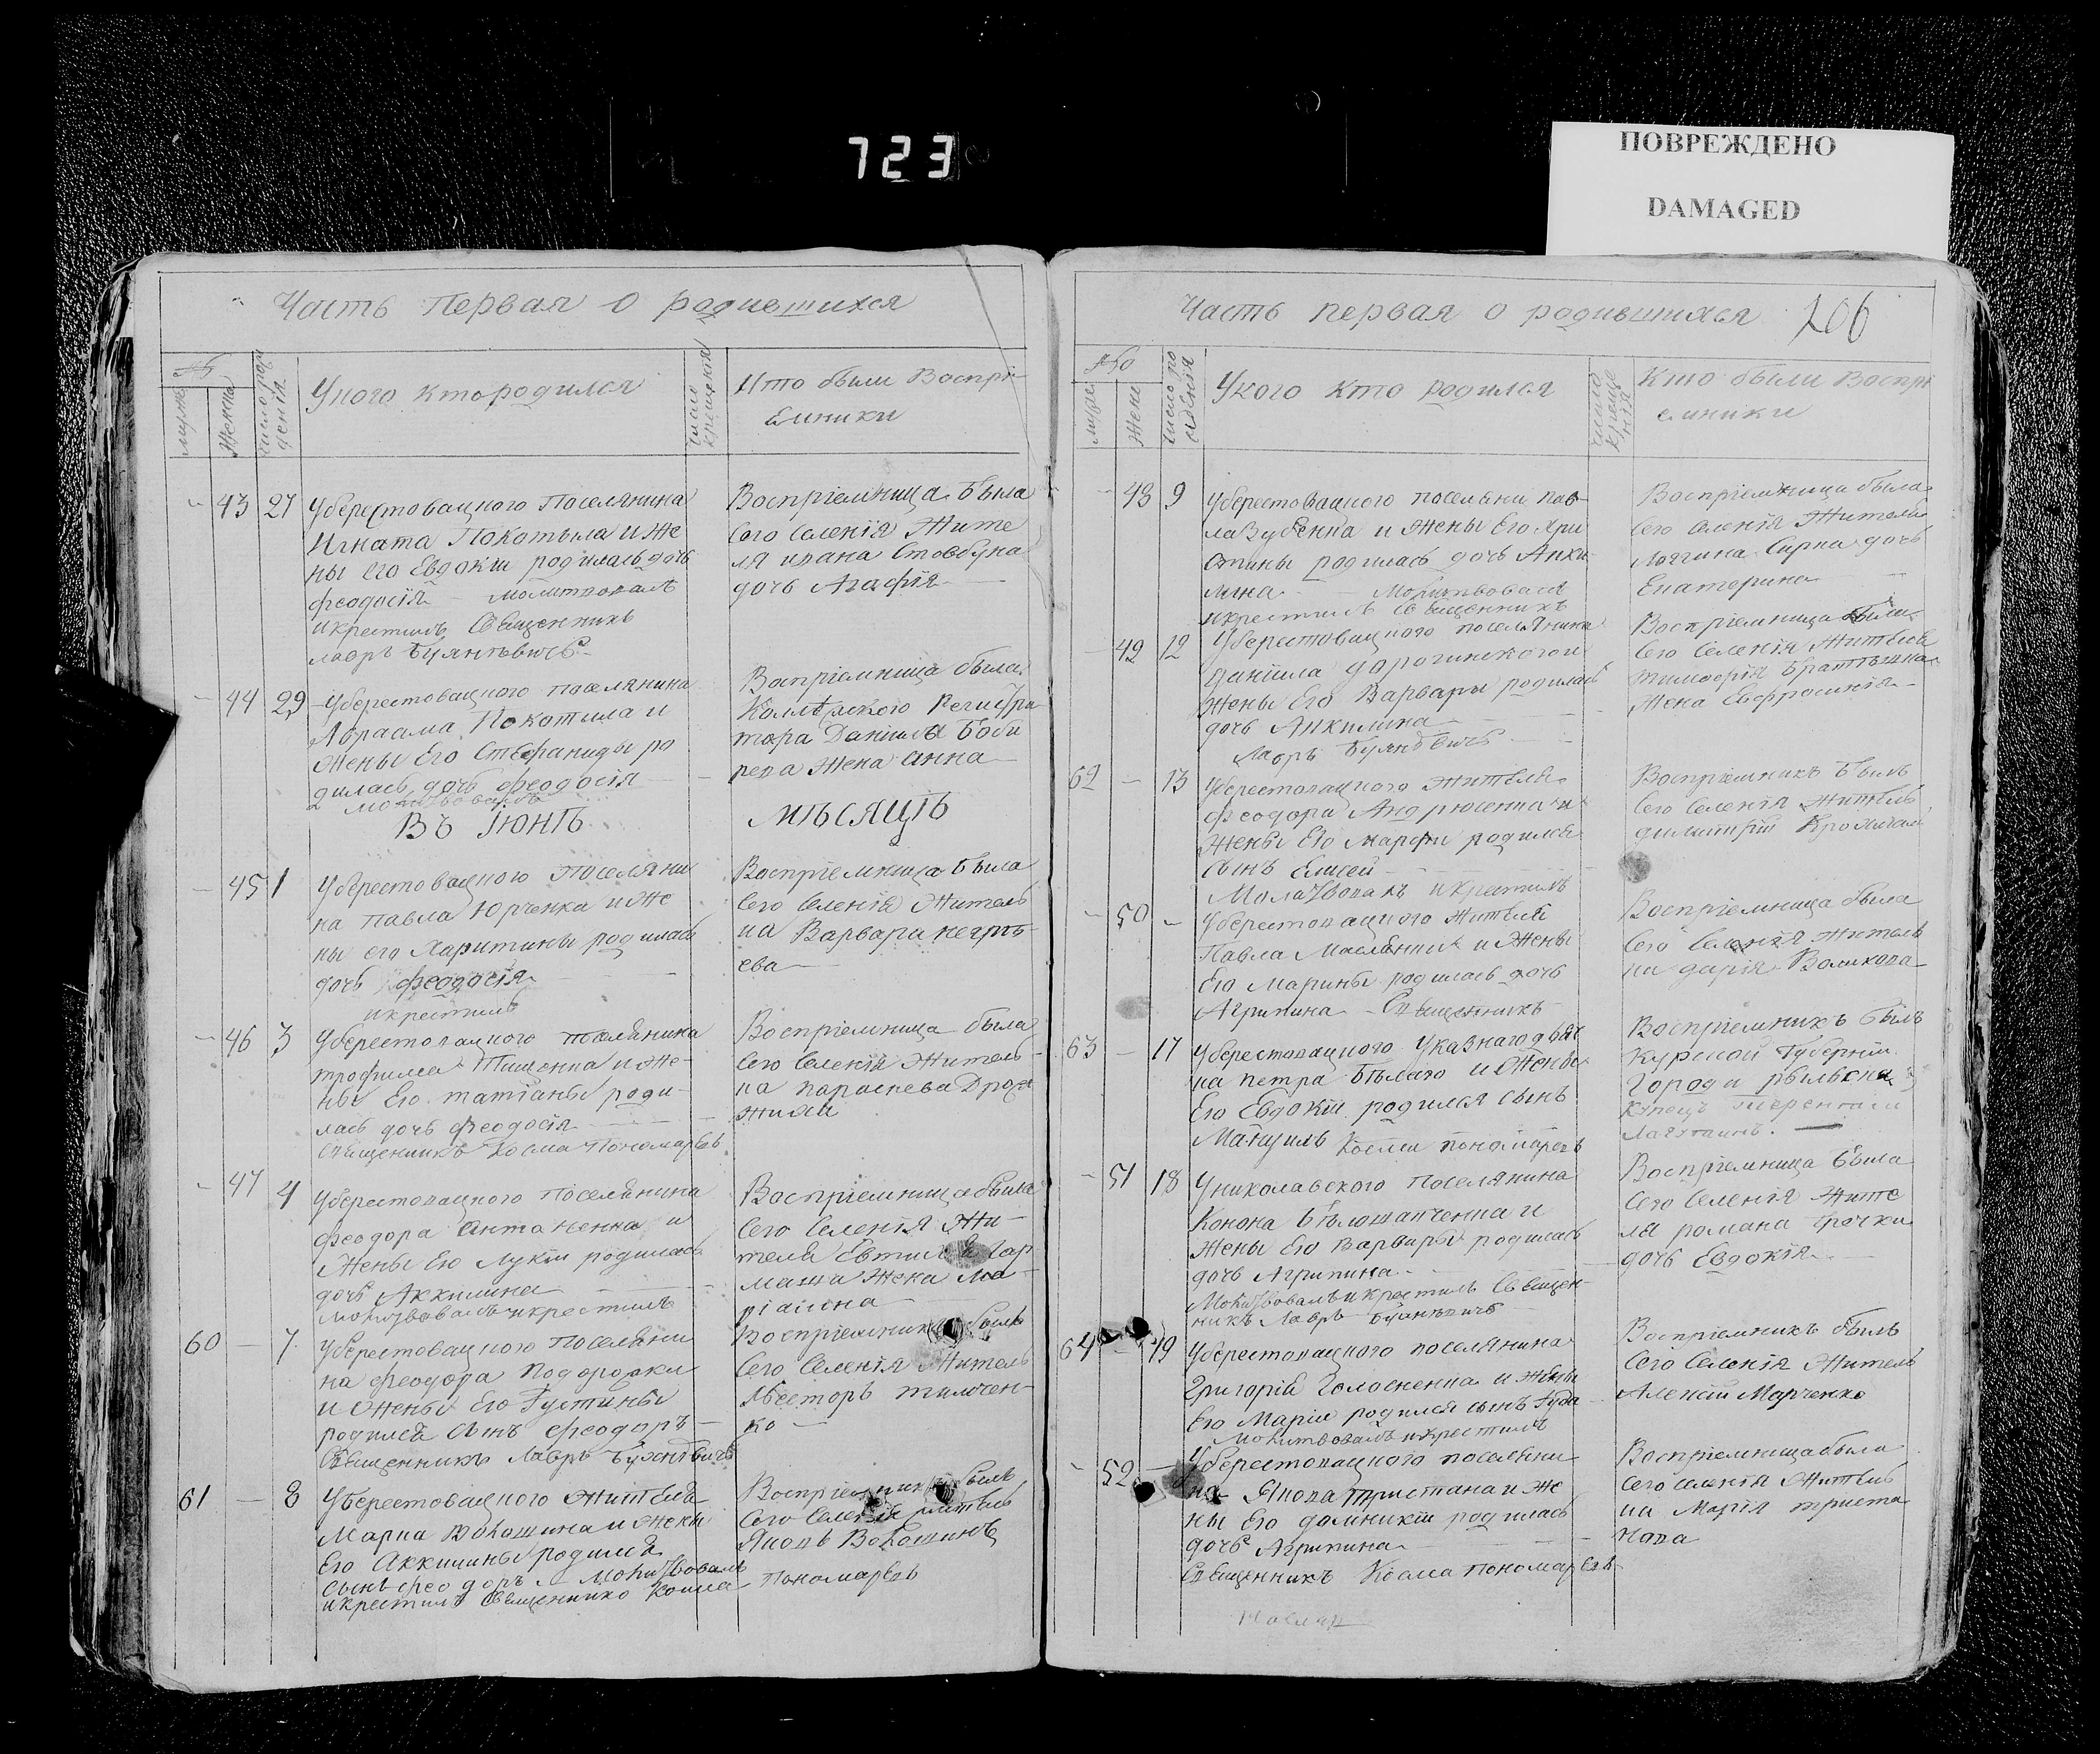 723
ПОВРЕЖДЕНО
DAMAGED
Часть первая о родившихся
№
мужес
женска
число рож
денія
У кого кто родился
число
крещенія
Кто были Воспрі-
емники
43 27 У берестовацкого Поселянина
Игната Покотыла и Же
ны его Евдокіи родилась дочь
Феодосія молитвовалъ
и крестилъ Священникъ
Лавръ Буяновичъ
Воспріемница была
Сего Селенія Жите
ля Ивана Стовбуна
дочь Агафія
44 29 У берестовацкого поселянина
Абраама Покотила и
Жены Его Стефаниды ро
дилась дочь Феодосія
молитвовалъ
Воспріемница была
Коллежского Регистра
тора Даніила Боби
рева Жена Анна
Въ Іюнѣ мѣсяцѣ
45 1 У берестовацкого поселяни
на Павла Юрченка и Же
ны его Харитины родилась
дочь Феодосія
и крестилъ
Воспріемница была
Сего Селенія Житель
ка Варвара
ева
46 3 У берестовацкого поселянина
Трофима Тищенка и Же-
ны Его Татіаны роди-
лась дочь Феодосія
Священникъ Косма Пономаревъ
Воспріемница была
Сего Селенія Житель-
ка Параскева
47 4 У берестовацкого поселянина
Феодора Антоненка и
Жены Его Лукіи родилась
дочь Аккилина
молитвовалъ и крестилъ
Воспріемница была
Сего Селенія Жи-
теля Евтихія Гар
маша Жена Ма-
ріамна
60 7 У берестовацкого поселяни
на Феодора Подорожки
и Жены Его Іустины
родился Сынъ Феодоръ
Священникъ Лавръ Буяновичъ
Воспріемникъ былъ
Сего Селенія Житель
Несторъ Тимчен-
ко
61 8 У берестовацкого Жителя
Марка Волошина и Жены
Его Аккилины родился
сынъ Феодоръ молитвовалъ
и крестилъ Священникъ Косма Пономаревъ
Воспріемникъ былъ
Сего Селенія житель
Яковъ Волошинъ
Часть первая о родившихся 206
№
муже
жене
число ро
жденія
У кого кто родился
число
креще
нія
Кто были Воспрі
емники
48 9 У берестовацкого поселяни Пав-
ла Зубенка и Жены Его Хри
стины родилась дочь Акки
лина Молитвовалъ
и крестилъ Священникъ
Воспріемница была
Сего Селенія Жителя
Логгина Сирка дочь
Екатерина
49 12 У берестовацкого поселянина
Даніила Дорогинского и
Жены Его Варвары родилась
дочь Аккилина
Лавръ Буяновичъ
Воспріемница была
Сего Селенія Жителя
Тимофія
Жена Евфросинія
62 13 У берестовацкого жителя
Феодора Андрюсенка и
Жены Его Марфы родился
сынъ Елисей
Молитвовалъ и крестилъ
Воспріемникъ былъ
Сего Селенія Житель
Димитрій
50 У берестовацкого жителя
Павла и Жены
Его Марины родилась дочь
Агрипина Священникъ
Воспріемница была
Сего Селенія житель
ка Дарія Воликова
63 17 У берестовацкого Указнаго дьяч
ка Петра Бѣлаго и Жены
Его Евдокіи родился сынъ
Мануилъ Косма Пономаревъ
Воспріемникъ былъ
Курской Губерніи
Города Рыльска
Купецъ Терентій
51 18 У николавского поселянина
Конона Бѣлошапченка и
Жены Его Варвары родилась
дочь Агрипина
Молитвовалъ и крестилъ Священ-
никъ Лавръ Буяновичъ
Воспріемница была
Сего Селенія Жите
ля Романа Грочки
дочь Евдокія
64 19 У берестовацкого поселянина
Григорій Голосненка и жены
Его Маріи родился сынъ Іуда
Молитвовалъ и крестилъ
Воспріемникъ былъ
Сего Селенія Житель
Алексій Марченко
52 У берестовацкого поселяни
на Якова Тристана и Же
ны Его Домникіи родилась
дочь Агрипина
Священникъ Косма Пономаревъ
Воспріемница была
Сего селенія Житель
ка Марія Триста
нова